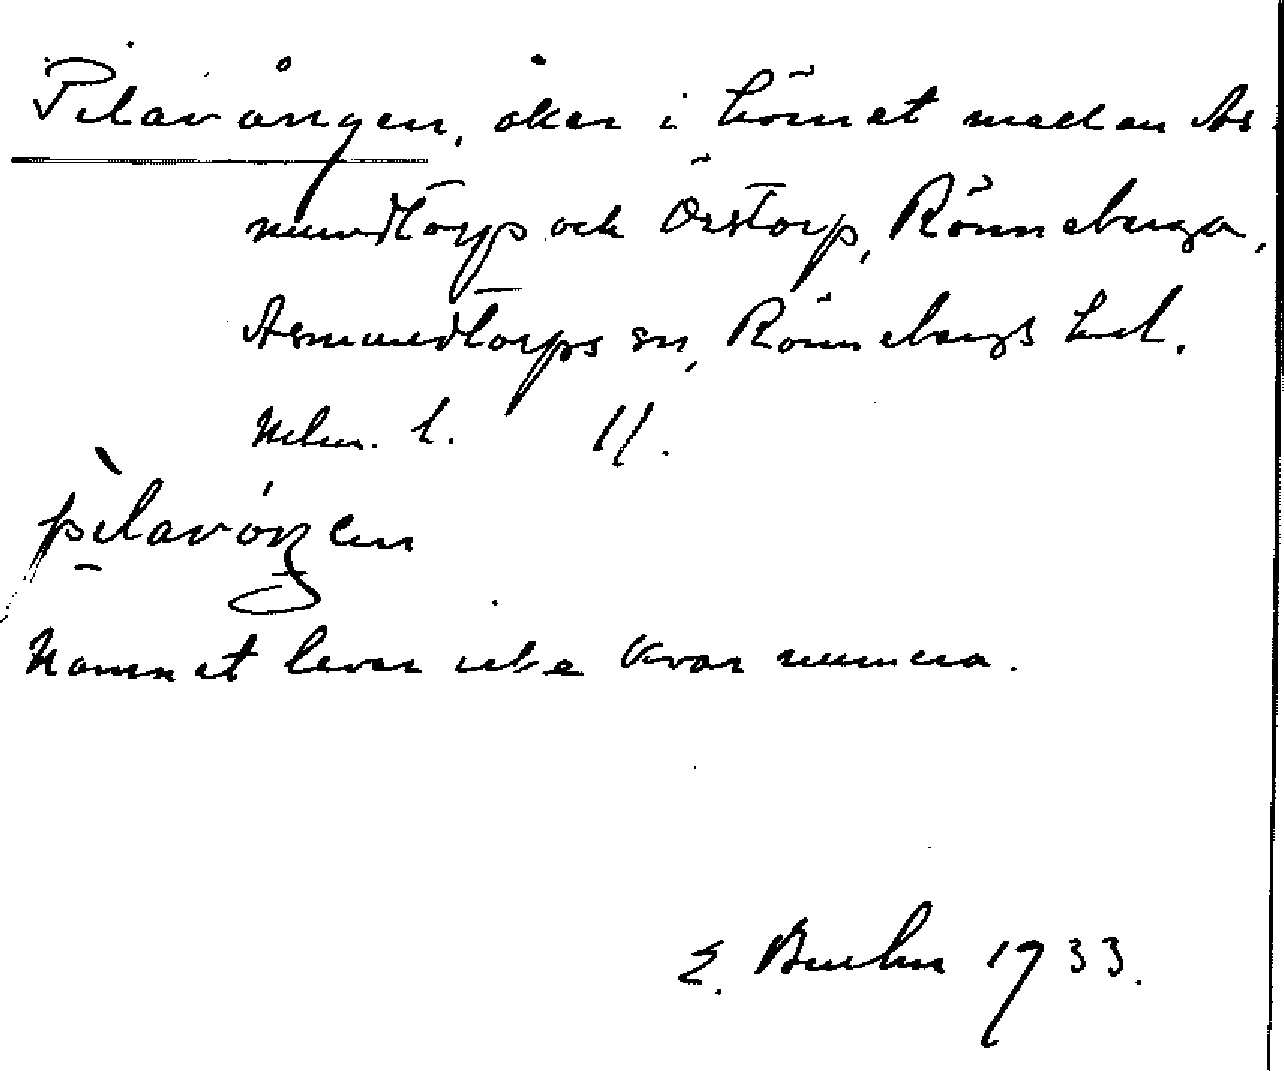 Pilavången, åker i hörnet mellan As-
mundtorp och Örstorp, Rönneberga,
Asmundtorps sn, Rönnebergs hd.
Mlm. l. 1/1.
pìlavóŋen
Namnet lever icke kvar numera.
E. 1933.